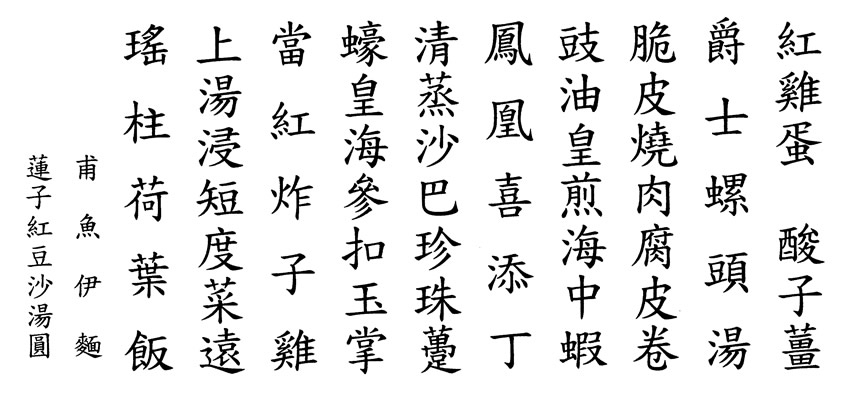 紅雞蛋　酸子薑
爵士螺頭湯
脆皮燒肉腐皮卷
豉油皇煎海中蝦
鳳凰喜添丁
清蒸沙巴珍珠躉
蠔皇海參扣玉掌
當紅炸子雞
上湯浸短度菜遠
瑤柱荷葉飯
甫魚伊麵
蓮子紅豆沙湯圓